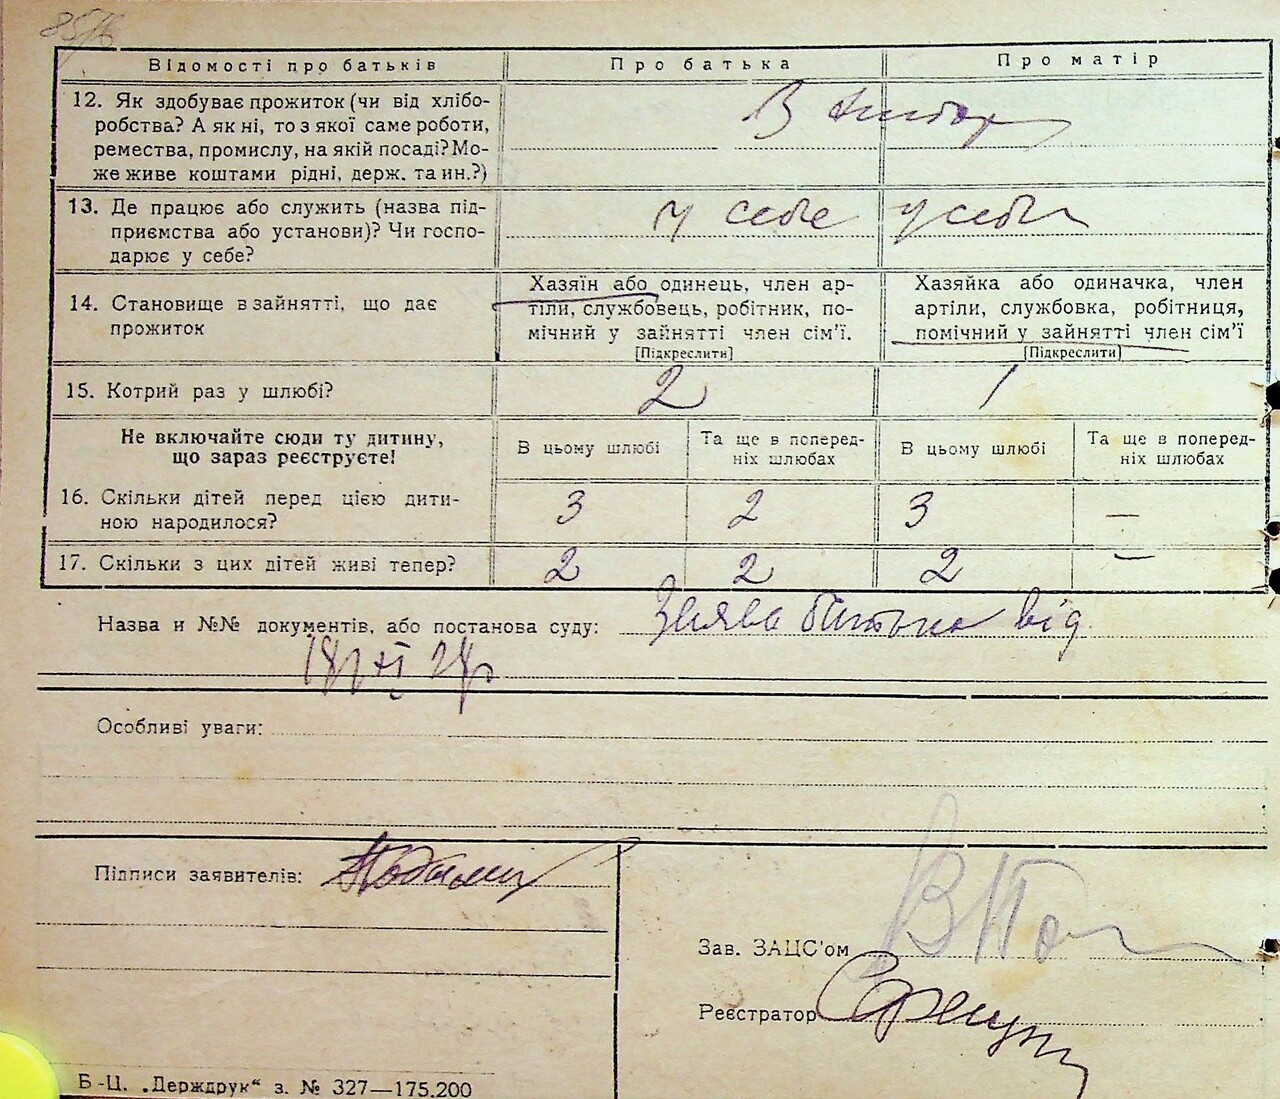 85/16
Відомості про батьків Про батька Про матір
12. Як здобуває прожиток (чи від хлібо-
робства? А як ні, то з якої саме роботи,
ремества, промислу, на якій посаді? Мо-
же живе коштами рідні, держ. та ин.?)
13. Де працює або служить (назва під-
приємства або установи)? Чи госпо-
дарює у себе?
у себе у себе
14. Становище в зайнятті, що дає
прожиток
Хазяїн або одинець, член ар-
тіли, службовець, робітник, по-
мічний у зайнятті член сім'ї.
[Підкреслити]
Хазяйка або одиначка, член
артіли, службовка, робітниця,
помічний у зайнятті член сім'ї
[Підкреслити]
15. Котрий раз у шлюбі? 2 1
Не включайте сюди ту дитину,
що зараз реєструєте!
В цьому шлюбі
Та ще в поперед-
ніх шлюбах
В цьому шлюбі
Та ще в поперед-
ніх шлюбах
16. Скільки дітей перед цією дити-
ною народилося?
3 2 3 —
17. Скільки з цих дітей живі тепер? 2 2 2 —
Назва и №№ документів, або постанова суду: Заява батька від
18/XI 28р
Особливі уваги:
Підписи заявителів:
Зав. ЗАЦС'ом
Реєстратор
Б-Ц. „Держдрук“ з. № 327—175.200